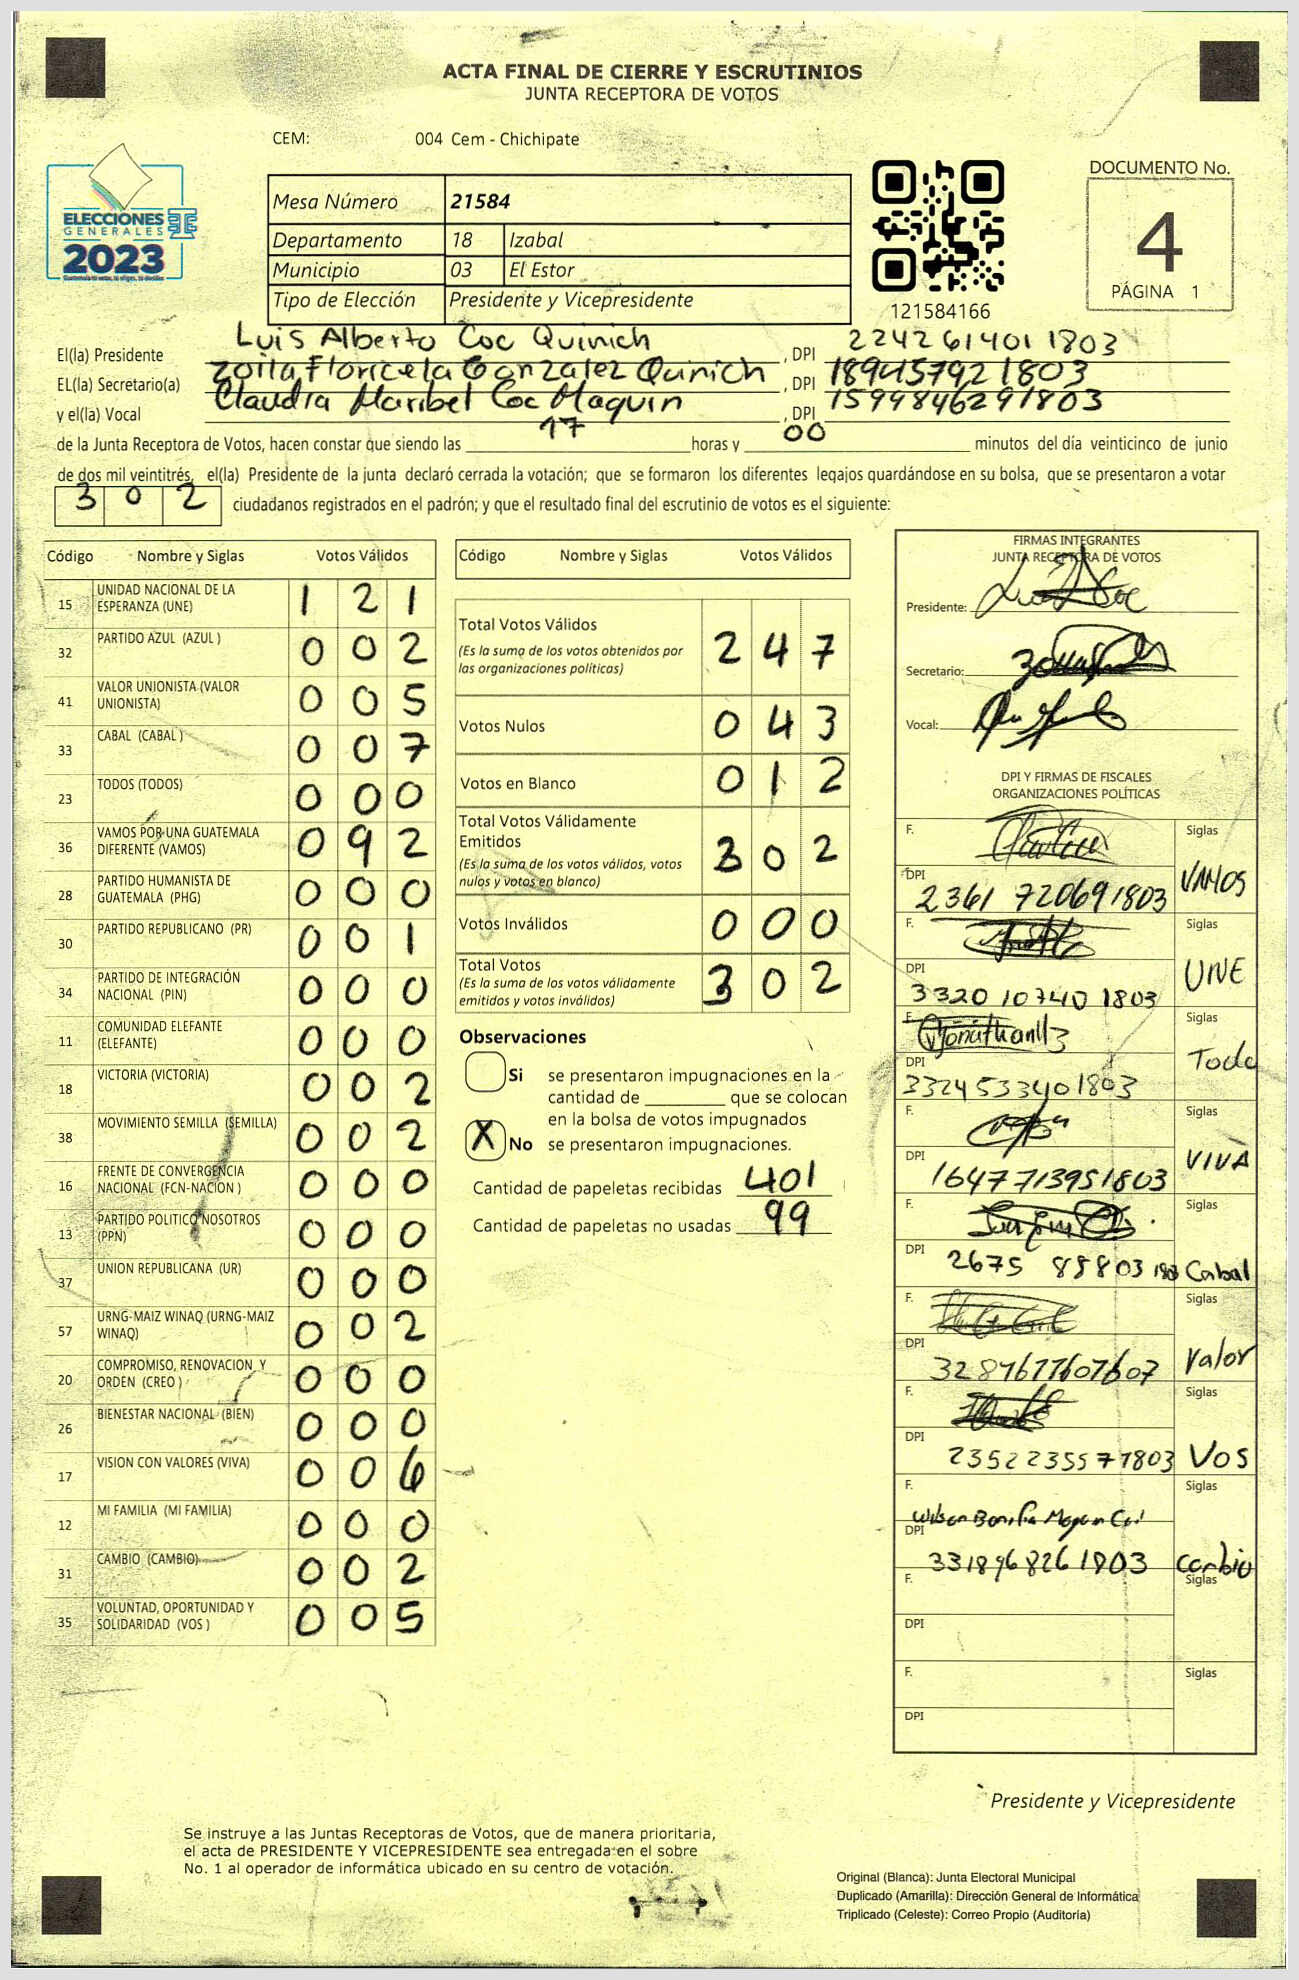 ACTA FINAL DE CIERRE Y ESCRUTINIOS
JUNTA RECEPTORA DE VOTOS
CEM: 004 Cem - Chichipate
ELECCIONES
GENERALES
2023
Mesa Número 21584
Departamento 18 Izabal
Municipio 03 El Estor
Tipo de Elección Presidente y Vicepresidente
121584166
DOCUMENTO No.
4
PÁGINA 1
El(la) Presidente Luis Alberto Coc Quinich, DPI 2242614011803
EL(la) Secretario(a) Zoila Floricela Gonzalez Quinich, DPI 1894579211803
y el(la) Vocal Claudia Maribel Coc Maquin, DPI 1599846291803
de la Junta Receptora de Votos, hacen constar que siendo las 17 horas y 00 minutos del día veinticinco de junio
de dos mil veintitrés, el(la) Presidente de la junta declaró cerrada la votación; que se formaron los diferentes legajos guardándose en su bolsa, que se presentaron a votar
302 ciudadanos registrados en el padrón; y que el resultado final del escrutinio de votos es el siguiente:
Código Nombre y Siglas Votos Válidos
15 UNIDAD NACIONAL DE LA ESPERANZA (UNE) 1 2 1
32 PARTIDO AZUL (AZUL ) 0 0 2
41 VALOR UNIONISTA (VALOR UNIONISTA) 0 0 5
33 CABAL (CABAL ) 0 0 7
23 TODOS (TODOS) 0 0 0
36 VAMOS POR UNA GUATEMALA DIFERENTE (VAMOS) 0 9 2
28 PARTIDO HUMANISTA DE GUATEMALA (PHG) 0 0 0
30 PARTIDO REPUBLICANO (PR) 0 0 1
34 PARTIDO DE INTEGRACIÓN NACIONAL (PIN) 0 0 0
11 COMUNIDAD ELEFANTE (ELEFANTE) 0 0 0
18 VICTORIA (VICTORIA) 0 0 2
38 MOVIMIENTO SEMILLA (SEMILLA) 0 0 2
16 FRENTE DE CONVERGENCIA NACIONAL (FCN-NACION ) 0 0 0
13 PARTIDO POLITICO NOSOTROS (PPN) 0 0 0
37 UNION REPUBLICANA (UR) 0 0 0
57 URNG-MAIZ WINAQ (URNG-MAIZ WINAQ) 0 0 2
20 COMPROMISO, RENOVACION Y ORDEN (CREO ) 0 0 0
26 BIENESTAR NACIONAL (BIEN) 0 0 0
17 VISION CON VALORES (VIVA) 0 0 6
12 MI FAMILIA (MI FAMILIA) 0 0 0
31 CAMBIO (CAMBIO) 0 0 2
35 VOLUNTAD, OPORTUNIDAD Y SOLIDARIDAD (VOS ) 0 0 5
Código Nombre y Siglas Votos Válidos
Total Votos Válidos 2 4 7
(Es la suma de los votos obtenidos por
las organizaciones políticas)
Votos Nulos 0 4 3
Votos en Blanco 0 1 2
Total Votos Válidamente
Emitidos 3 0 2
(Es la suma de los votos válidos, votos
nulos y votos en blanco)
Votos Inválidos 0 0 0
Total Votos 3 0 2
(Es la suma de los votos válidamente
emitidos y votos inválidos)
Observaciones
Si se presentaron impugnaciones en la
cantidad de ________ que se colocan
en la bolsa de votos impugnados
X No se presentaron impugnaciones.
Cantidad de papeletas recibidas 401
Cantidad de papeletas no usadas 99
FIRMAS INTEGRANTES
JUNTA RECEPTORA DE VOTOS
Presidente:
Secretario:
Vocal:
DPI Y FIRMAS DE FISCALES
ORGANIZACIONES POLÍTICAS
F. Siglas
DPI 2361 720691803 VAMOS
F. Siglas
DPI 3320 10740 1803 UNE
F. Siglas
DPI 3324533401803 Todo
F. Siglas
DPI 1647713951803 VIVA
F. Siglas
DPI 2675 88803 Cabal
F. Siglas
DPI Valor
F. Siglas
DPI 2352235571803 VOS
F. Wilson Siglas
DPI 3318968261803 cambio
F. Siglas
DPI
F. Siglas
DPI
Presidente y Vicepresidente
Se instruye a las Juntas Receptoras de Votos, que de manera prioritaria,
el acta de PRESIDENTE Y VICEPRESIDENTE sea entregada en el sobre
No. 1 al operador de informática ubicado en su centro de votación.
Original (Blanca): Junta Electoral Municipal
Duplicado (Amarilla): Dirección General de Informática
Triplicado (Celeste): Correo Propio (Auditoría)